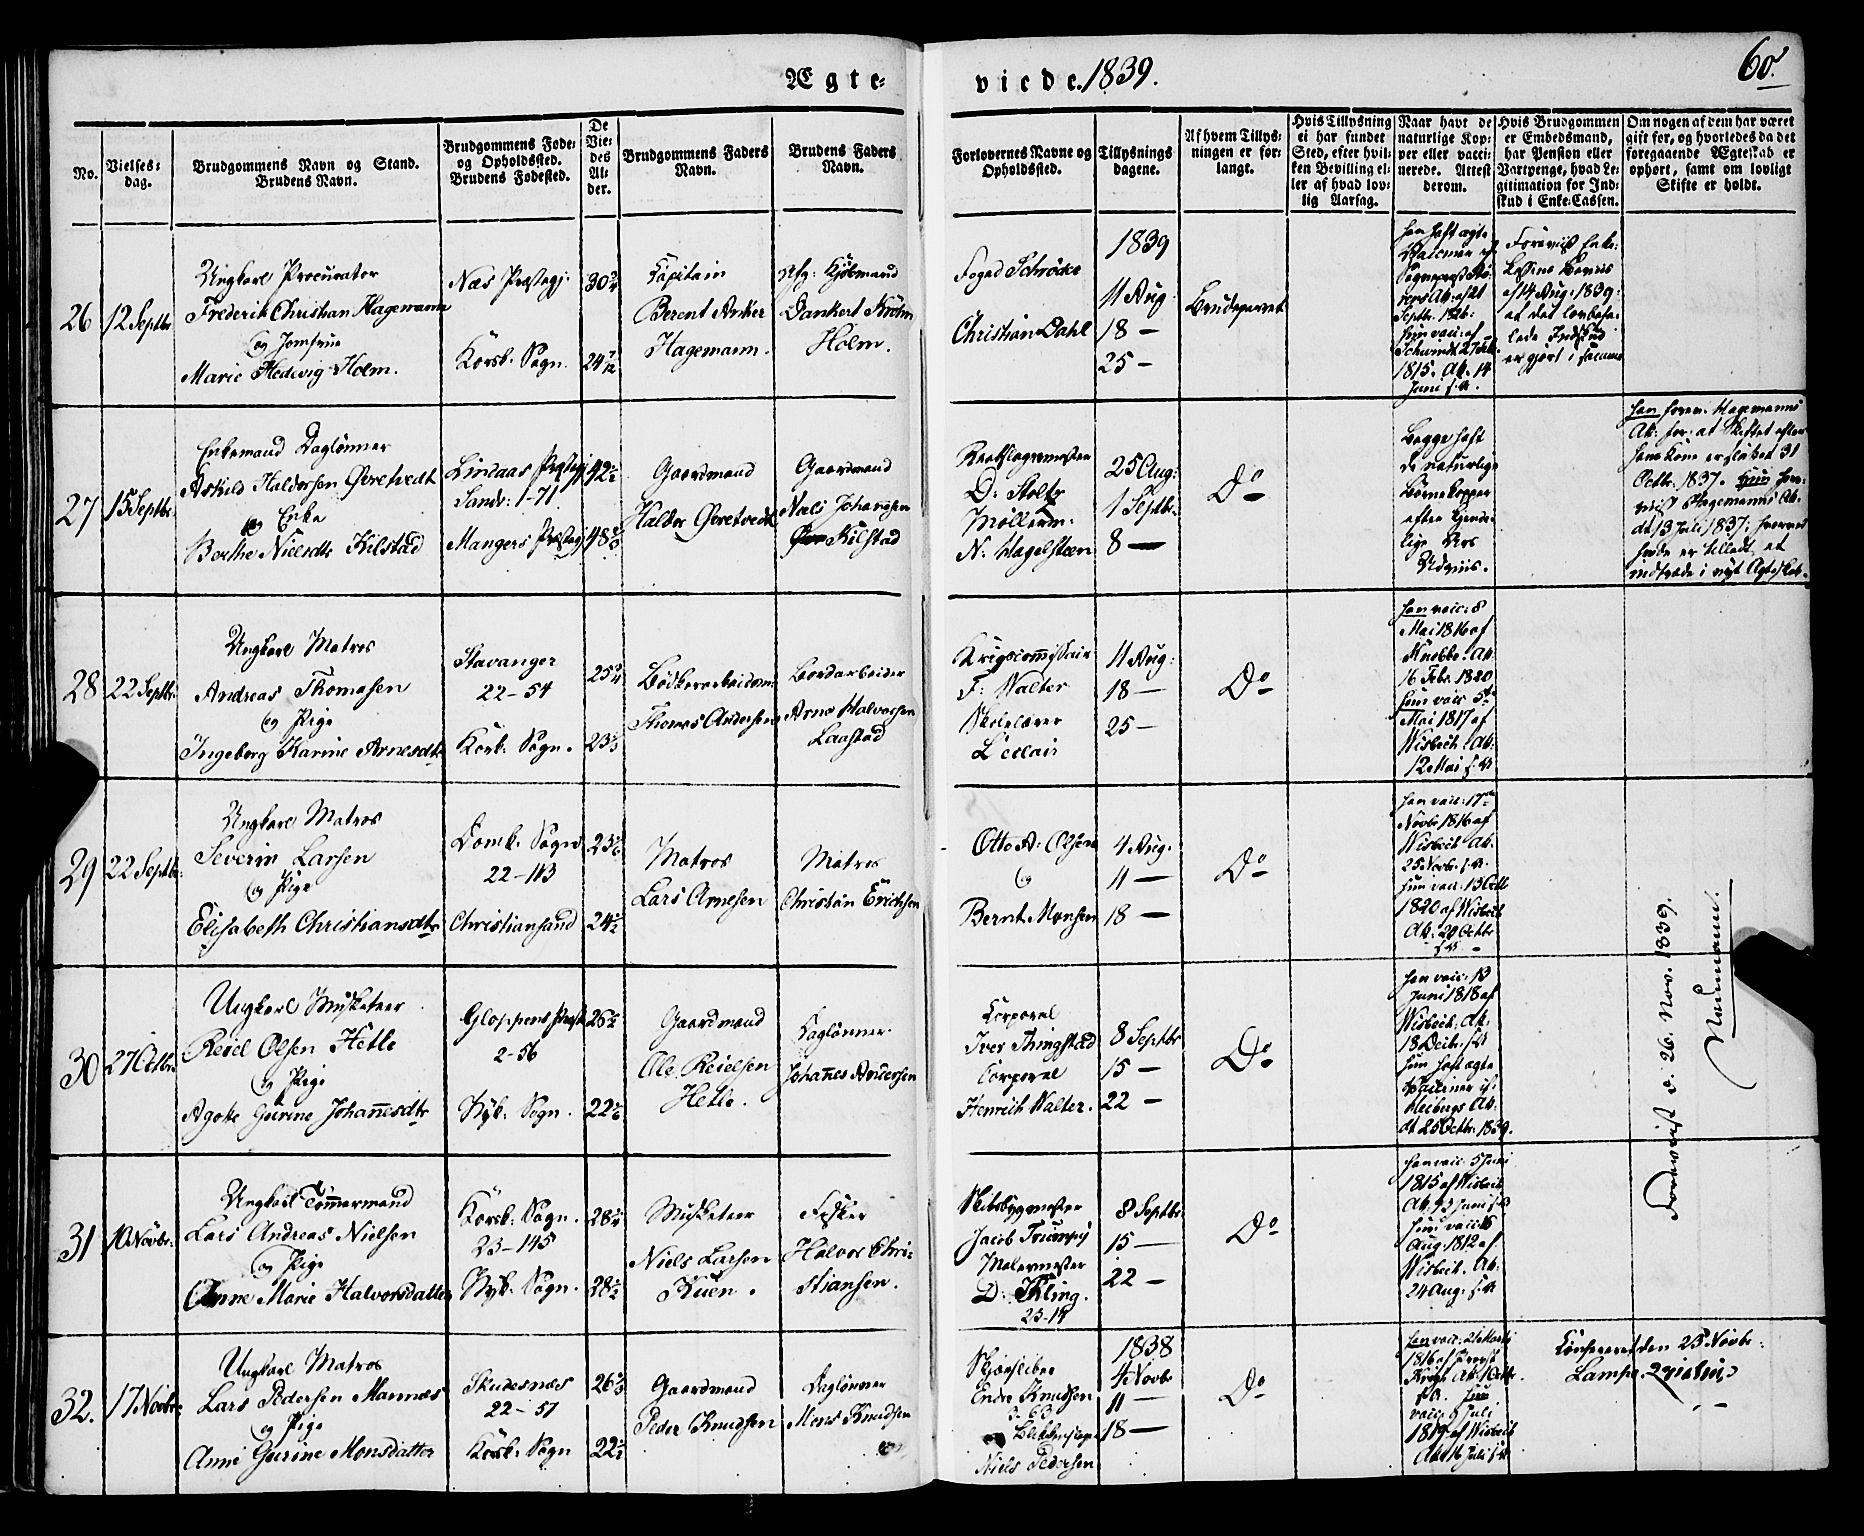 Ægte-
viede. 1839.
60.
No.
Vielses-
dag.
Brudgommens Navn og Stand.
Brudens Navn.
Brudgommens Føde-
og Opholdssted.
Brudens Fødested.
De
Vie-
des
Al-
der.
Brudgommens Faders
Navn.
Brudens Faders
Navn.
Forlovernes Navne og
Opholdssted.
Tillysnings
dagene.
Af hvem Tillys-
ningen er for-
langt.
Hvis Tillysning
ei har fundet
Sted, efter hvil-
ken Bevilling el-
ler af hvad lov-
lig Aarsag.
Naar havt de
naturlige Kop-
per eller vacci-
nerede. Attest
derom.
Hvis Brudgommen
er Embedsmand,
har Pension eller
Vartpenge, hvad Le-
gitimation for Ind-
skud i Enke-Cassen.
Om nogen af dem har været
gift før, og hvorledes da det
foregaaende Ægteskab er
ophørt, samt om lovligt
Skifte er holdt.
26
12 Septbr.
Ungkarl Procurator
Frederik Christian Hagemann
og Jomfrue
Marie Hedevig Holm.
Næs Præstegj:
Korsk. Sogn.
30 3/4
24 7/12
Capitain
Berent Anker
Hagemann.
Afg: Kjøbmand
Dankert Krohn
Holm.
Foged Schrøder
Christian Dahl
1839
11 Aug:
18 —
25 —
Brudeparret
han haft ægte
Septbr. 1826.
1815. At. 14
Juni s. A.
Foreviist Enke-
Cassens Beviis
af 14 Aug. 1839:
at det lovbefa-
lede Indskud
er gjort i samme
27
15 Septbr.
Enkemand Daglønner
Askild Haldorsen Qvretvedt
og Enke
Berthe Nielsdtr Kilstad
Lindaas Præstegj
Sandv: 1-71.
Mangers Præstegj
42 1/2
Gaardmand
Haldor Qvretvedt
Gaardmand
Niels Johannesen
Kilstad
D: Stoltz
Møllerm.
N: Hagelsteen
25 Aug:
1 Septbr.
8 —
Do
Begge haft
de naturlige
Børnekopper
efter kjende-
lige Ars
Udviis.
han forev. Hagemanns
At. for at Skiftet efter
hans Kone er sluttet 31
Octbr. 1837. hun fore-
viist Hagemanns At.
dt 13 Juli 1837, hvorved
hende er tilladt at
indtræde i nyt Ægteskab.
28
22 Septbr:
Ungkarl Matros
Andreas Thomasen
og Pige
Ingeborg Karine Arnesdtr
Stavanger
22-54
Korsk: Sogn.
25 3/4
Bødkerarbeidsm
Thomas Andersen
Bordarbeider
Arne Halvorsen
Laastad
Krigscommissair
F: Walter
Skolelærer
LeClair
11 Aug:
18 —
25 —
Do
han vacc: 8
Mai 1816 af
Knebbe. At.
16 Febr. 1820
hun vacc 5te
Mai 1817 af
Wisbech. At.
12 Mai s: A
29
22 Septbr.
Ungkarl Matros
Severin Larsen
og Pige
Elisabeth Christiansdtr
Domk. Sogn
22-113
Christiansand
24 1/2
Matros
Lars Arnesen
Matros
Christian Erichsen
Otto A: Olsen
og
Bernt Monsen
4 Aug.
11 —
18 —
Do
han vacc: 17de
Novbr 1816 af
Wisbech At.
25 Novbr. s: A.
hun vacc: 13 Octb
1820 af Wisbech
At. 20 Octbr
s: A —
30
27 Octbr.
Ungkarl Musketeer
Reiel Olsen Hetle
og Pige
Agathe Gurine Johannesdtr
Gloppens Præstg
2-56
Nyk: Sogn.
Gaardmand
Ole Reielsen
Hetle.
Daglønner
Johannes Andersen
Corporal
Iver Thingstad
Corporal
Henrich Walter.
8 Septbr
15 —
22 —
Do
han vacc: 13
Juni 1818 af
Wisbech. At.
18 Decbr. s: A
hun haft ægte
Vacciner if.
Kleibergs At.
dt 25 Octbr. 1839.
31
10 Novbr.
Ungkarl Tømmermand
Lars Andreas Nielsen
og Pige
Anne Marie Halvorsdatter
Korsk: Sogn.
23-145
Nyk: Sogn.
28 1/2
Musketeer
Niels Larsen
Kuen.
Fisker
Halvor Chri-
stiansen.
Skibsbygmester
Jacob Trumpy
Malermester
D: Kling.
23-14
8 Septbr.
15 —
22 —
Do
han vacc: 5 Juni
1815 af Wisbech
At. 13 Juni s: A
hun vacc: 16
Aug. 1812 af
Wisbech. At.
24 Aug. s: A
32.
17 Novbr.
Ungkarl Matros
Lars Pedersen Mannæs
og Pige
Anne Gurine Monsdatter
Skudesnæs
22-57
Korsk: Sogn
Gaardmand
Peder Knudsen
Daglønner
Mons Knudsen
Endre Knudsen
3-63
Niels Pedersen
1838
4 Novbr
11 —
18 —
Do
han vacc: 21 Marti
1816 af Provst
Krogh At. 1 Octb.
s. A. hun
vacc: 9 Juli
1819 af Wisbech
At. 16 Juli s: A
Confereret den 25 Novbr.
Lampe.
Foreviist d. 26. Nov. 1839.
Neumann.